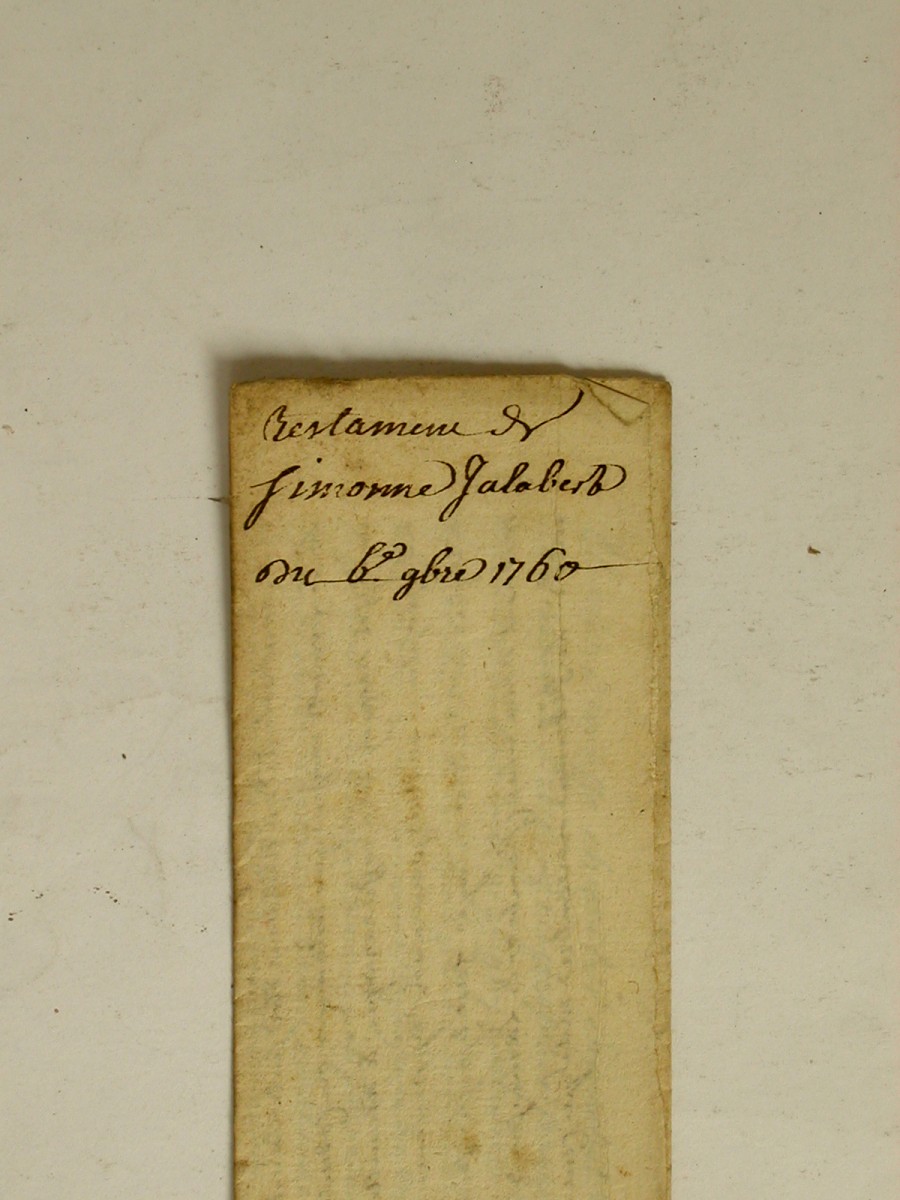 testament de
simonne Jalabert
du 6e 9bre 1760